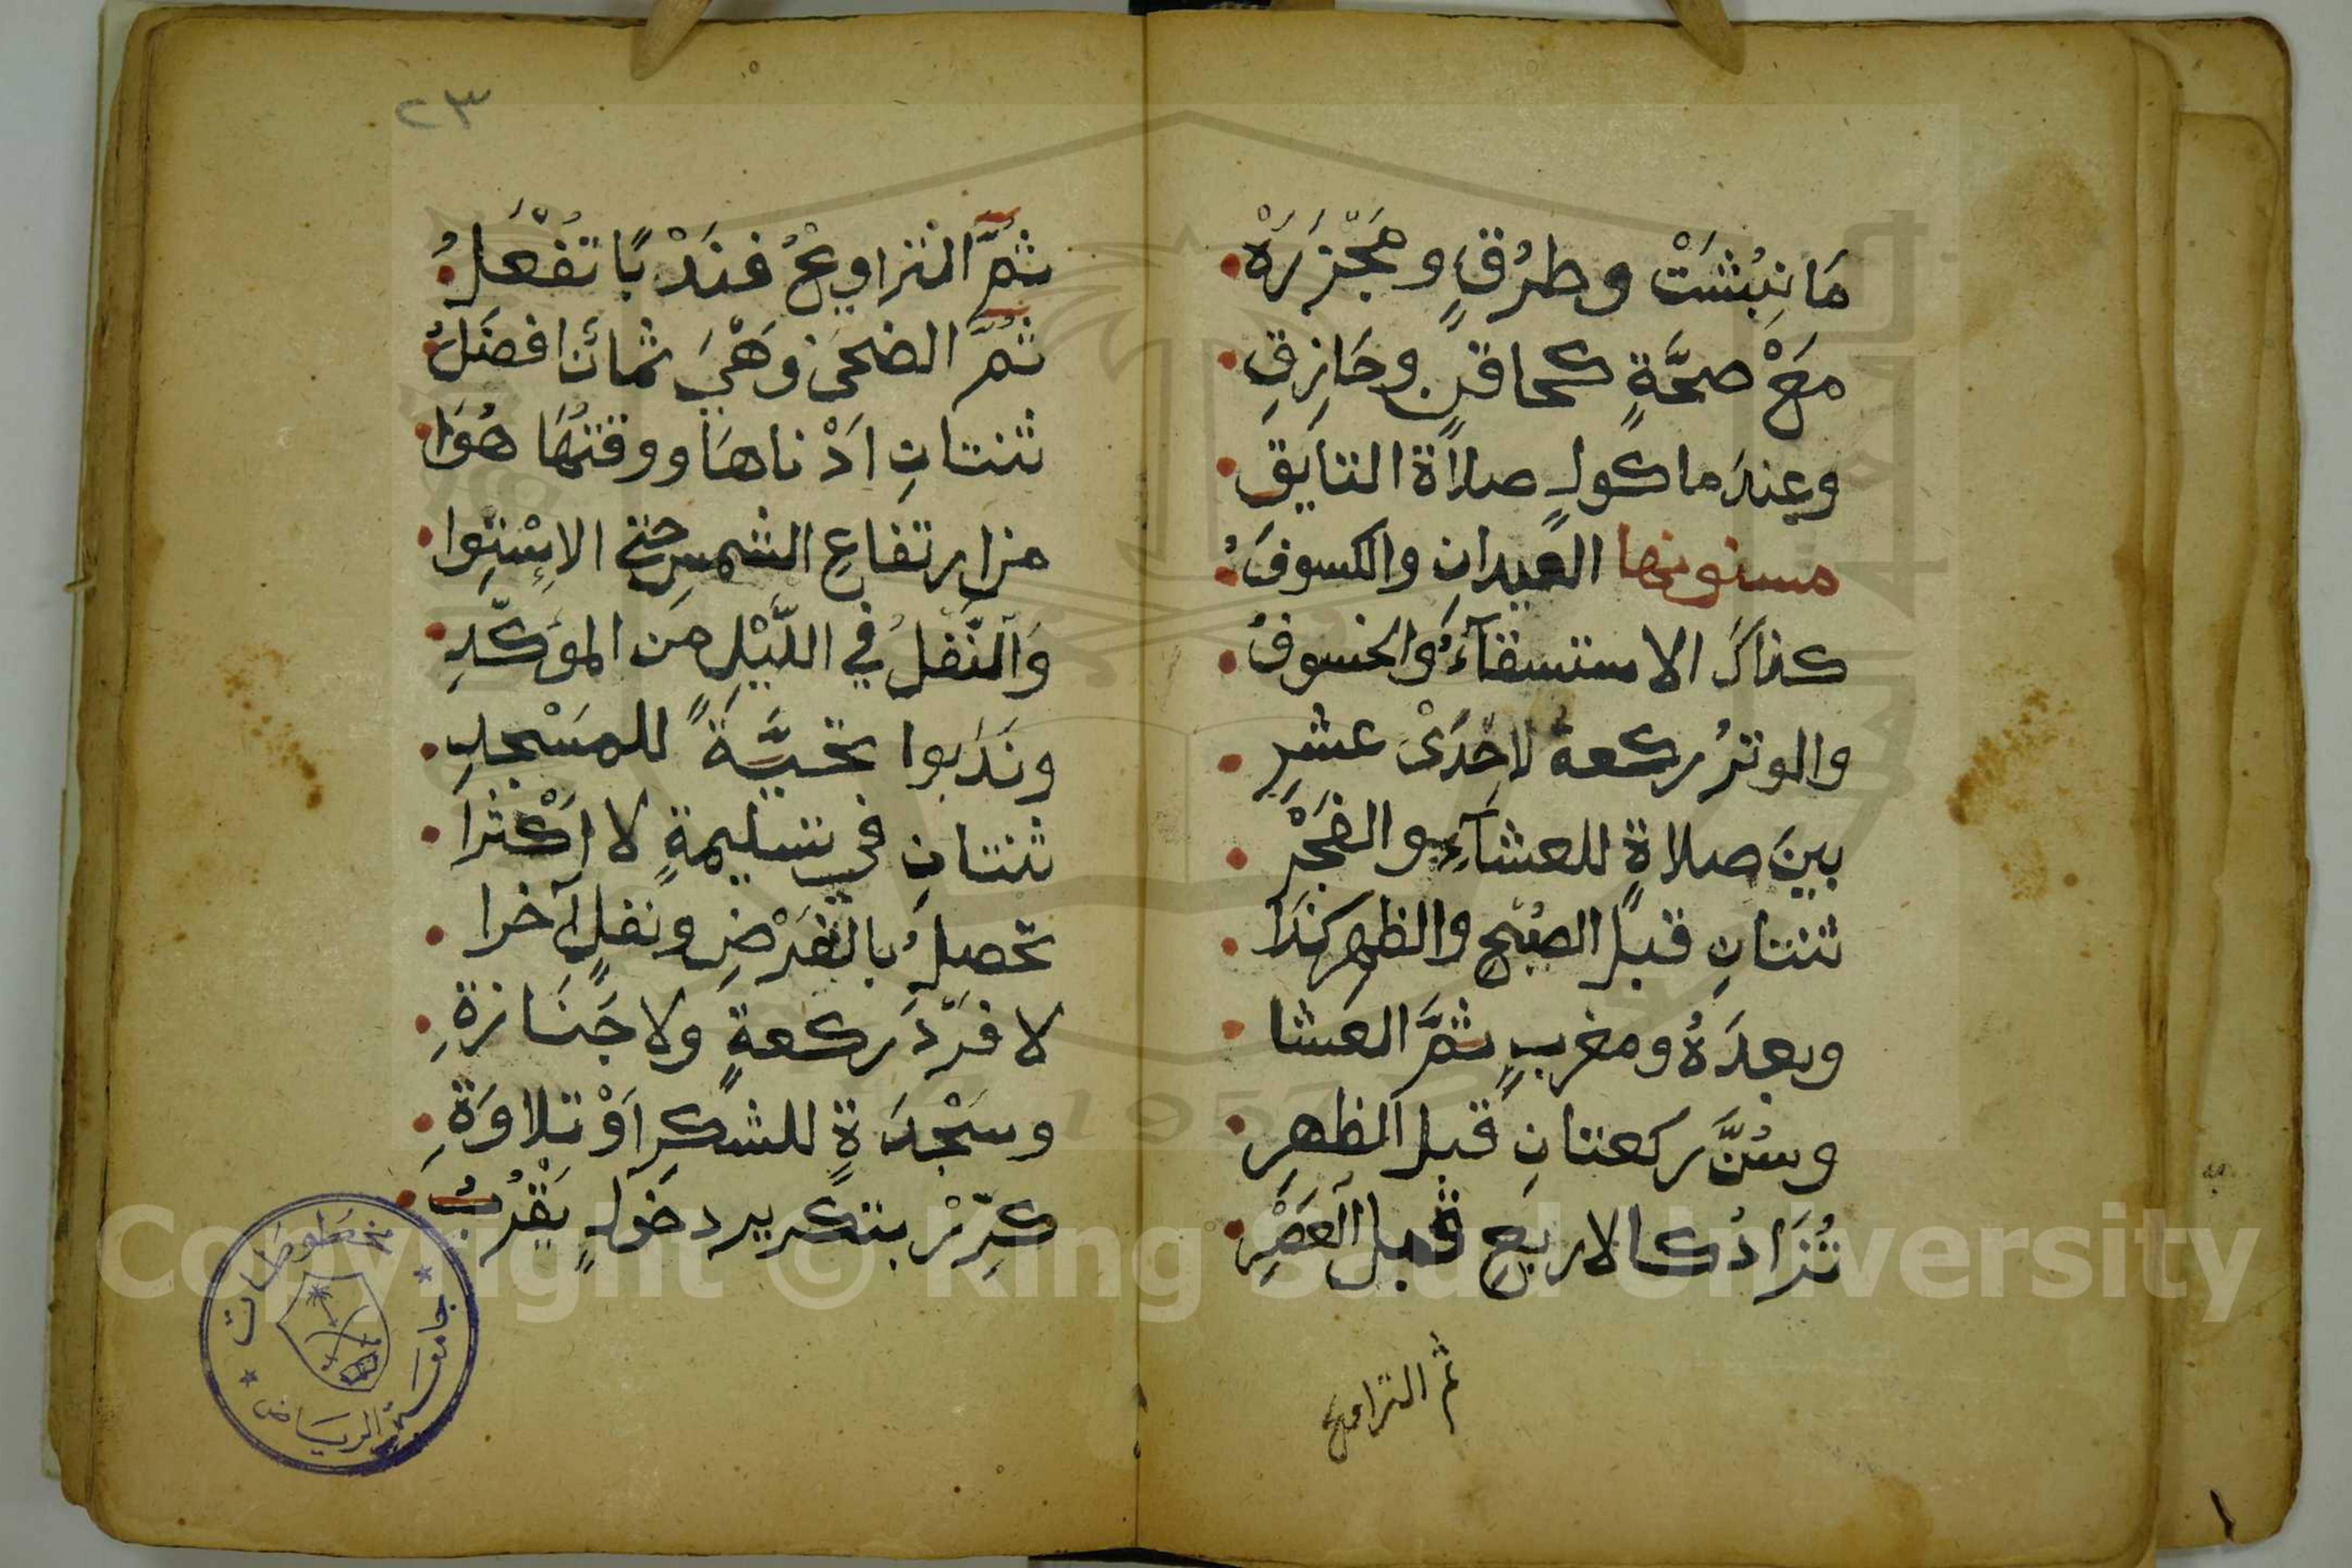 مَا نِبُشَتْ وطرُقٍ ومَجْزَرَهْ
مَعْ صحَّةٍ كحاقنٍ وحَازِقِ
وعِندَ ماكولٍ صلاَة التايِقِ
مسنونها العيدانِ والكسوفُ
كذاكَ الاستسقآءُ والخسوفُ
والوترُ ركعة لاِحْدَىْ عشرِ
بينَ صلاةٍ للعشآءِ والفَجْرِ
ثنتانِ قبلَ الصُبْحِ والظهر كَذَا
وبعدَهُ ومغربٍ ثمَّ العَشا
وسُنَّ ركعتانِ قبلَ الظهرِ
تُزَادُ كالاربَعِ قبل العَصْرِ
ثم التراويح
٢٣
ثمَّ التراويحُ فنَدْبًا تفْعَلُ
ثمَّ الضحى وَهْيَ ثمانٌ افضَلُ
ثنتانِ اَدْناهَا ووقتُهَا هُوَا
من ارتفاعِ الشمسِ حتى الاِسْتِوا
وَالنَّفلُ في اللَّيْلِ من الموَكَّدِ
ونَدَبوا تحيَّةً للمَسْجِدِ
ثنتانِ في تسليمةٍ لا اَكْثرا
تحصلُ بالفَرْضِ ونفلٍ آخرا
لا فَرْدَ ركعةٍ ولا جَنَازةِ
وسَجْدَةٍ للشكرِ اَوْ تلاوَةِ
كرِّرْ بتكرير دخولٍ يَقْرُبُ
مخطوطات
جامعة الرياض
1957
Copyright © King Saud University